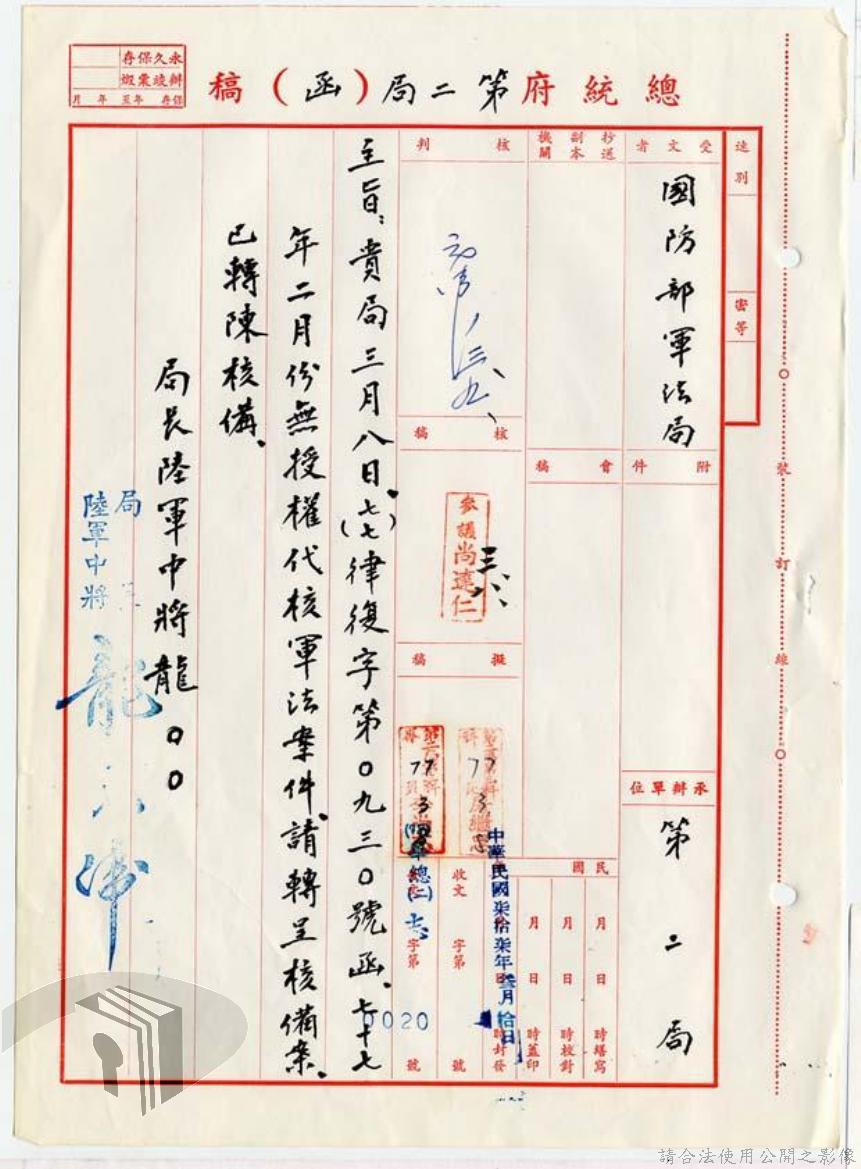 總統府第二局(函)稿
永久保存
辦竣彙燬
保存 年至 年 月
速別
密等
受文者
國防部軍法局
附件
承辦單位
第二局
抄送
副本
機關
會稿
民國
月 日 時繕寫
月 日 時校對
月 日 時蓋印
時封發
中華民國柒拾柒年叁月拾日
核判
核稿
參議尚達仁
擬稿
77
3
77
3
收文 字第 號
華總(二)
字第 0020 號
主旨:貴局三月八日(七七)律復字第0九三0號函,七十七
年二月份無授權代核軍法案件,請轉呈核備案,
已轉陳核備。
局長陸軍中將龍00
局長
陸軍中將
裝
訂
線
請合法使用公開之影像